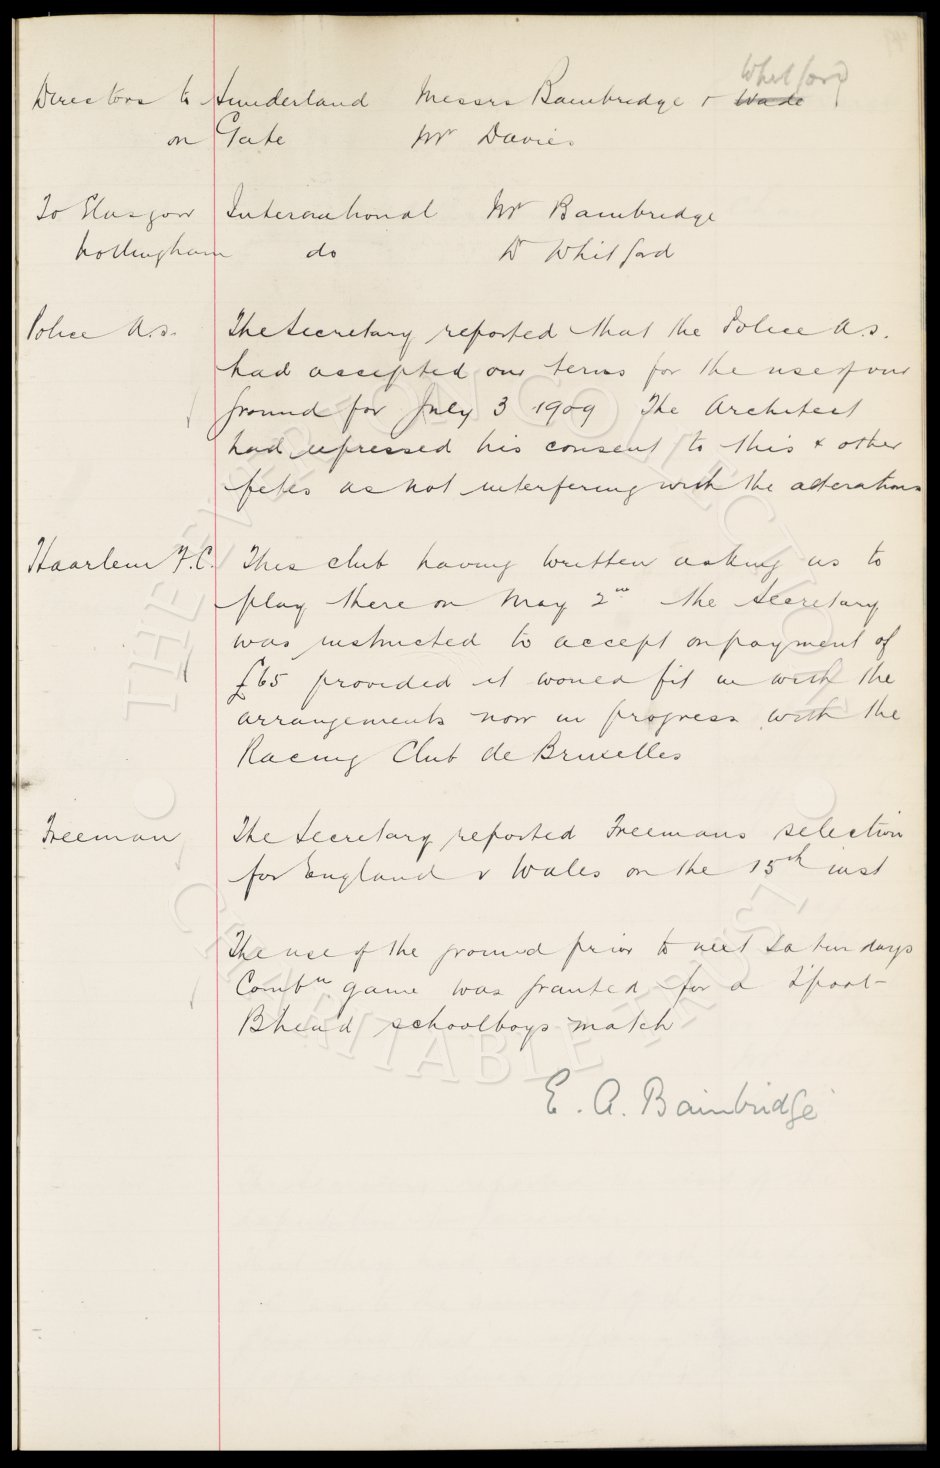 Directors to Sunderland Messrs Bainbridge & Wade Whitford
on Gate Mr Davies
To Glasgow International Mr Bainbridge
Nottingham do Dr Whitford
Police A.S. The Secretary reported that the Police A.S.
had accepted our terms for the use of our
ground for July 3 1909 The Architect
had expressed his consent to this & other
fetes as not interfering with the alterations
Haarlem F.C. This club having written asking us to
play there on May 2nd the Secretary
was instructed to accept on payment of
£65 provided it would fit in with the
arrangements now in progress with the
Racing Club de Bruxelles
Freeman The Secretary reported Freemans selection
for England v Wales on the 15th inst
The use of the ground prior to next Saturdays
Combn game was granted for a L'pool-
B'head schoolboys match
E. A. Bainbridge
THE EVERTON COLLECTION
CHARITABLE TRUST